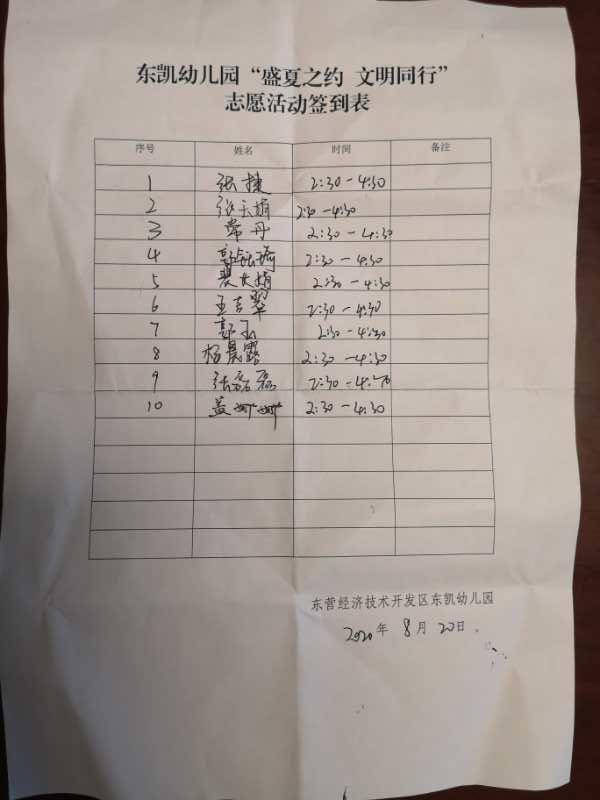 东凯幼儿园“盛夏之约 文明同行”
志愿活动签到表
序号 姓名 时间 备注
1 张捷 2:30-4:30
2 张天娟 2:30-4:30
3 常丹 2:30-4:30
4 2:30-4:30
5 2:30-4:30
6 王吉翠 2:30-4:30
7 2:30-4:30
8 杨晨露 2:30-4:30
9 张磊磊 2:30-4:30
10 盖姗姗 2:30-4:30
东营经济技术开发区东凯幼儿园
2020年 8月 20日.